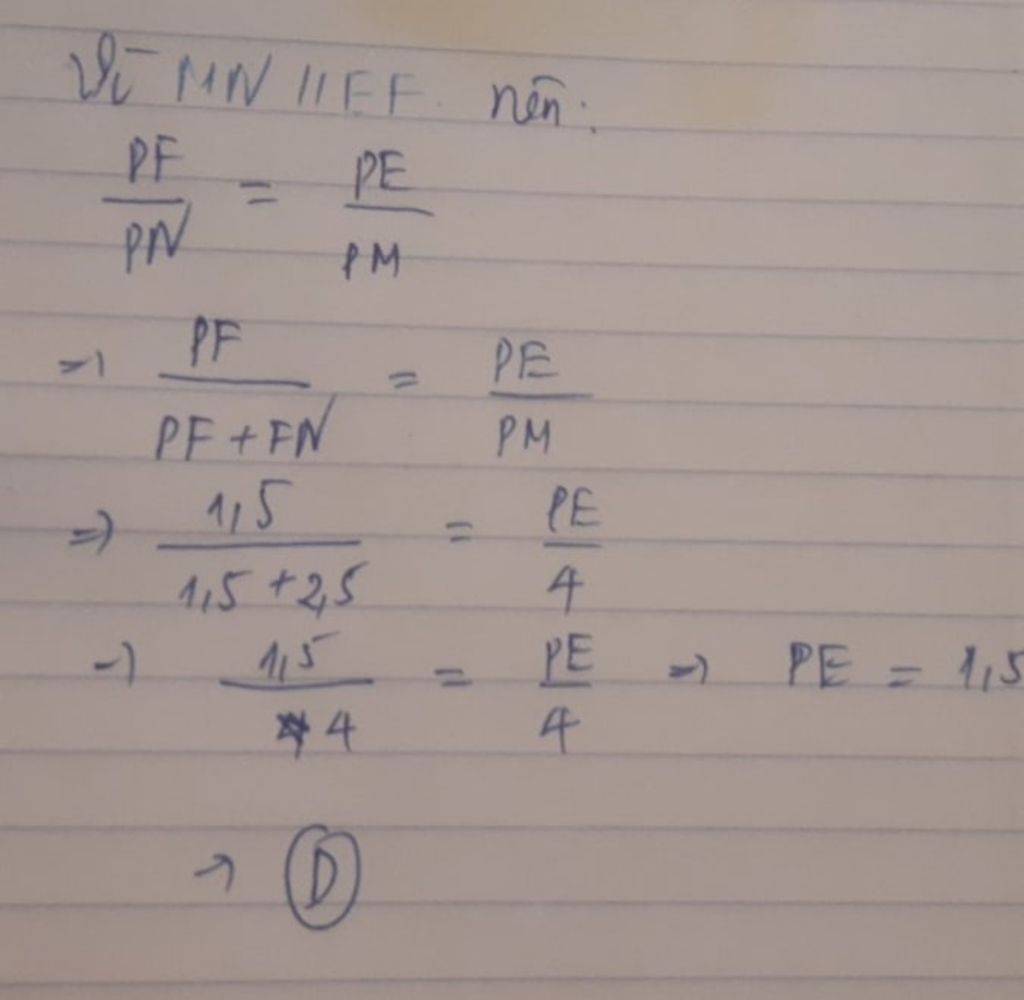 Vì MN // EF. nên:
PF/PN = PE/PM
=> PF/(PF + FN) = PE/PM
=> 1,5/(1,5 + 2,5) = PE/4
=> 1,5/4 = PE/4 => PE = 1,5
→ D